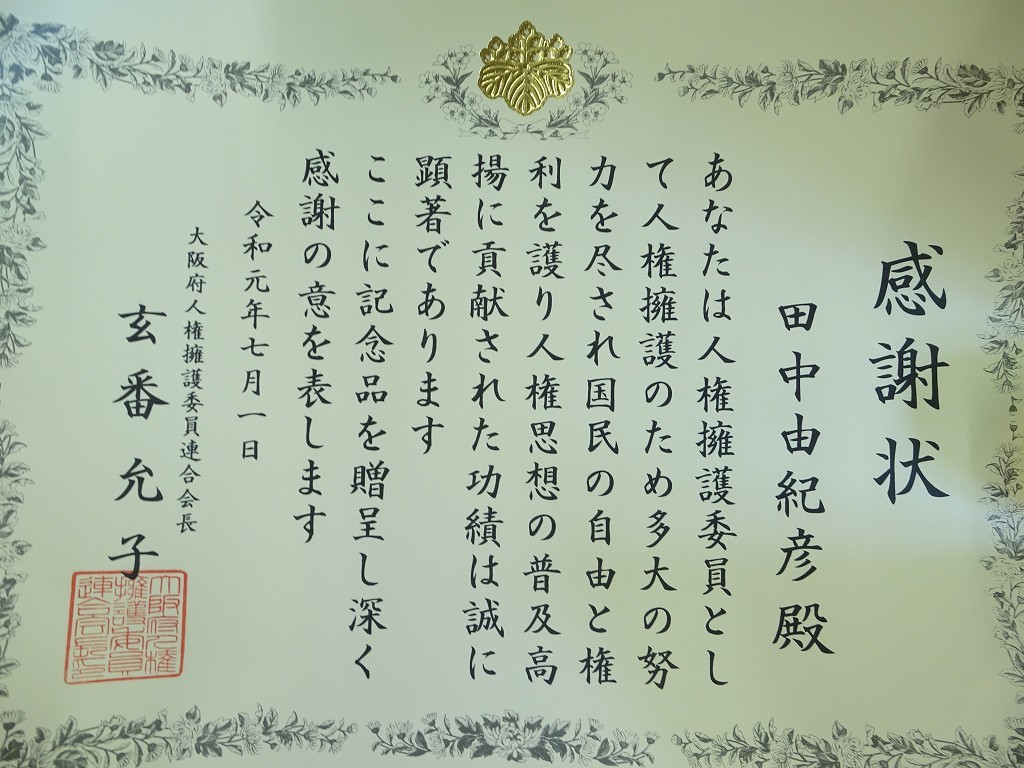 感謝状
田中由紀彦殿
あなたは人権擁護委員とし
て人権擁護のため多大の努
力を尽され国民の自由と権
利を護り人権思想の普及高
揚に貢献された功績は誠に
顕著であります
ここに記念品を贈呈し深く
感謝の意を表します
令和元年七月一日
大阪府人権擁護委員連合会長
玄番允子